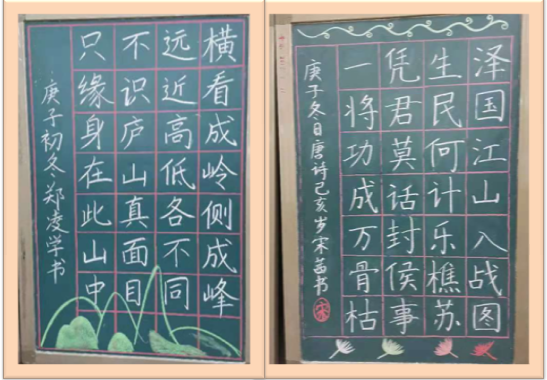 横看成岭侧成峰
远近高低各不同
不识庐山真面目
只缘身在此山中
庚子初冬郑凌学书
泽国江山入战图
生民何计乐樵苏
凭君莫话封侯事
一将功成万骨枯
庚子冬日唐诗己亥岁宋苗书